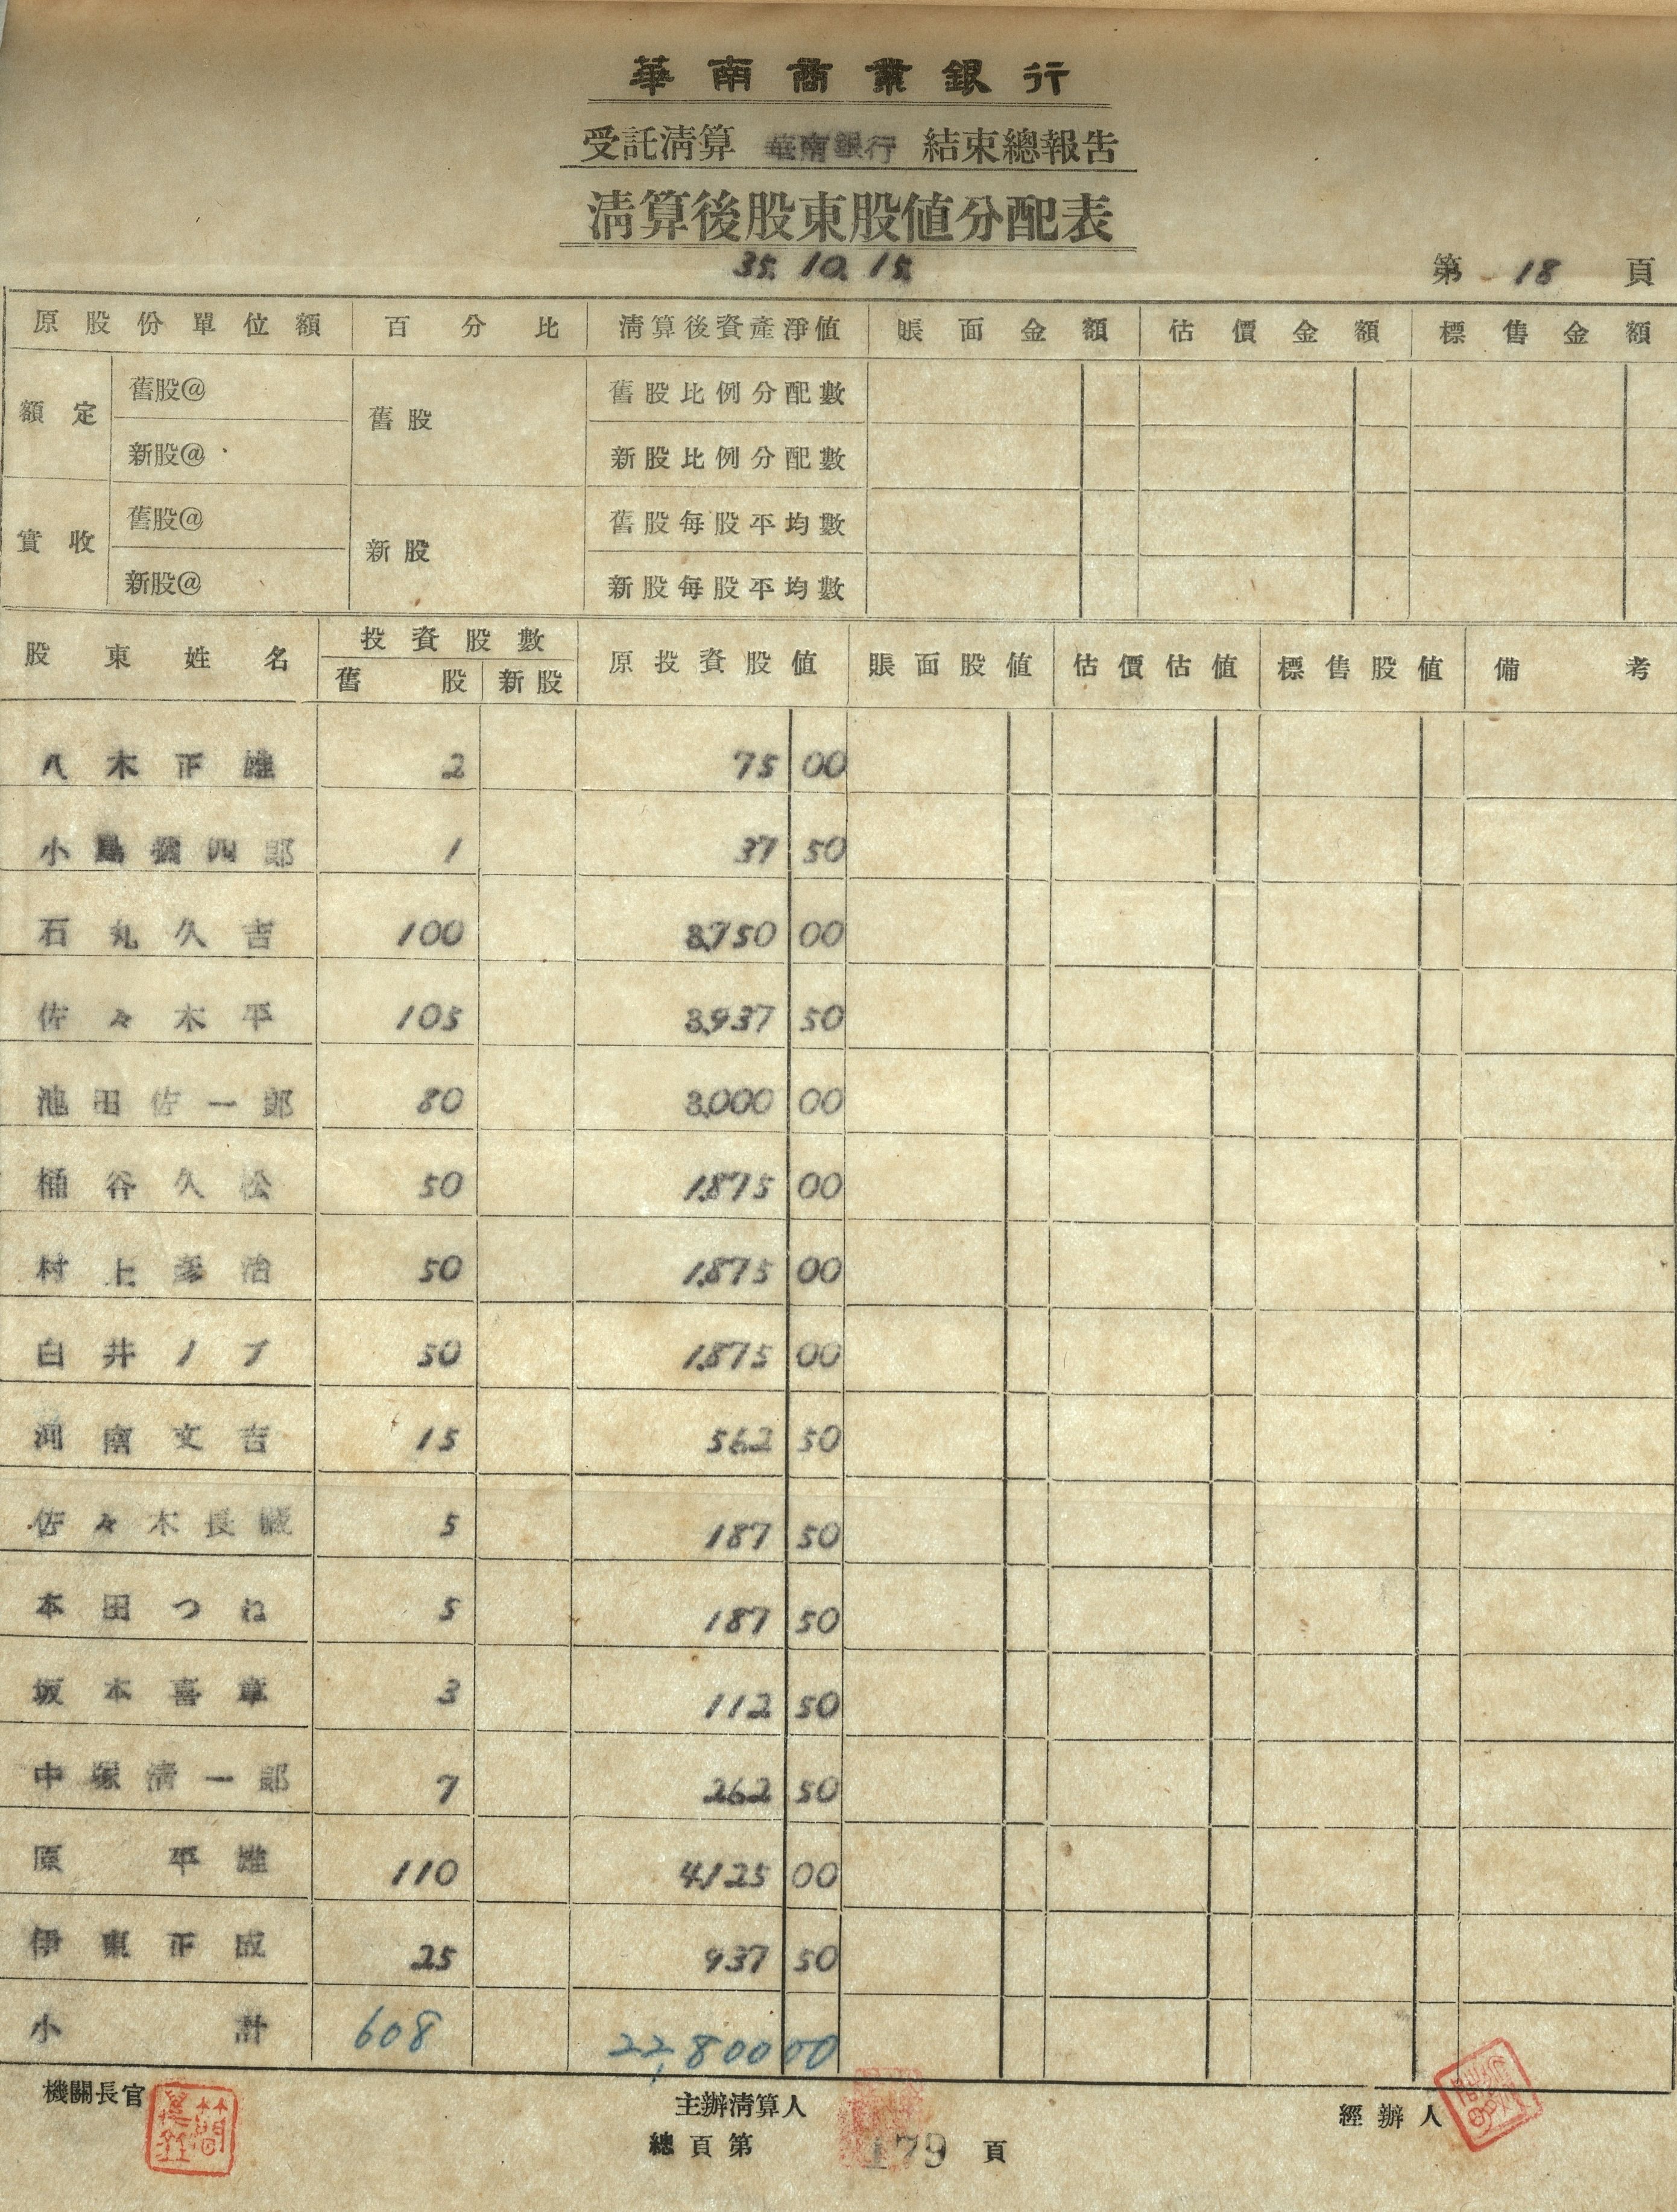 華南商業銀行
受託清算 華南銀行 結束總報告
清算後股東股值分配表
35. 10. 15.
第 18 頁
原股份單位額 百分比 清算後資產淨值 賬面金額 估價金額 標售金額
額定 舊股@ 舊股 舊股比例分配數
新股@ 新股比例分配數
實收 舊股@ 新股 舊股每股平均數
新股@ 新股每股平均數
股東姓名 投資股數 原投資股值 賬面股值 估價估值 標售股值 備考
舊股 新股
八木正雄 2 75 00
小島猪四郎 1 37 50
石丸久吉 100 3,750 00
佐々木平 105 3,937 50
池田佐一郎 80 3,000 00
桶谷久松 50 1,875 00
村上彥治 50 1,875 00
白井ノブ 50 1,875 00
河南文吉 15 562 50
佐々木長藏 5 187 50
本田つね 5 187 50
坂本喜章 3 112 50
中塚清一郎 7 262 50
原平雄 110 4,125 00
伊東正成 25 937 50
小計 608 22,800 00
機關長官 主辦清算人 經辦人
總頁第 179 頁